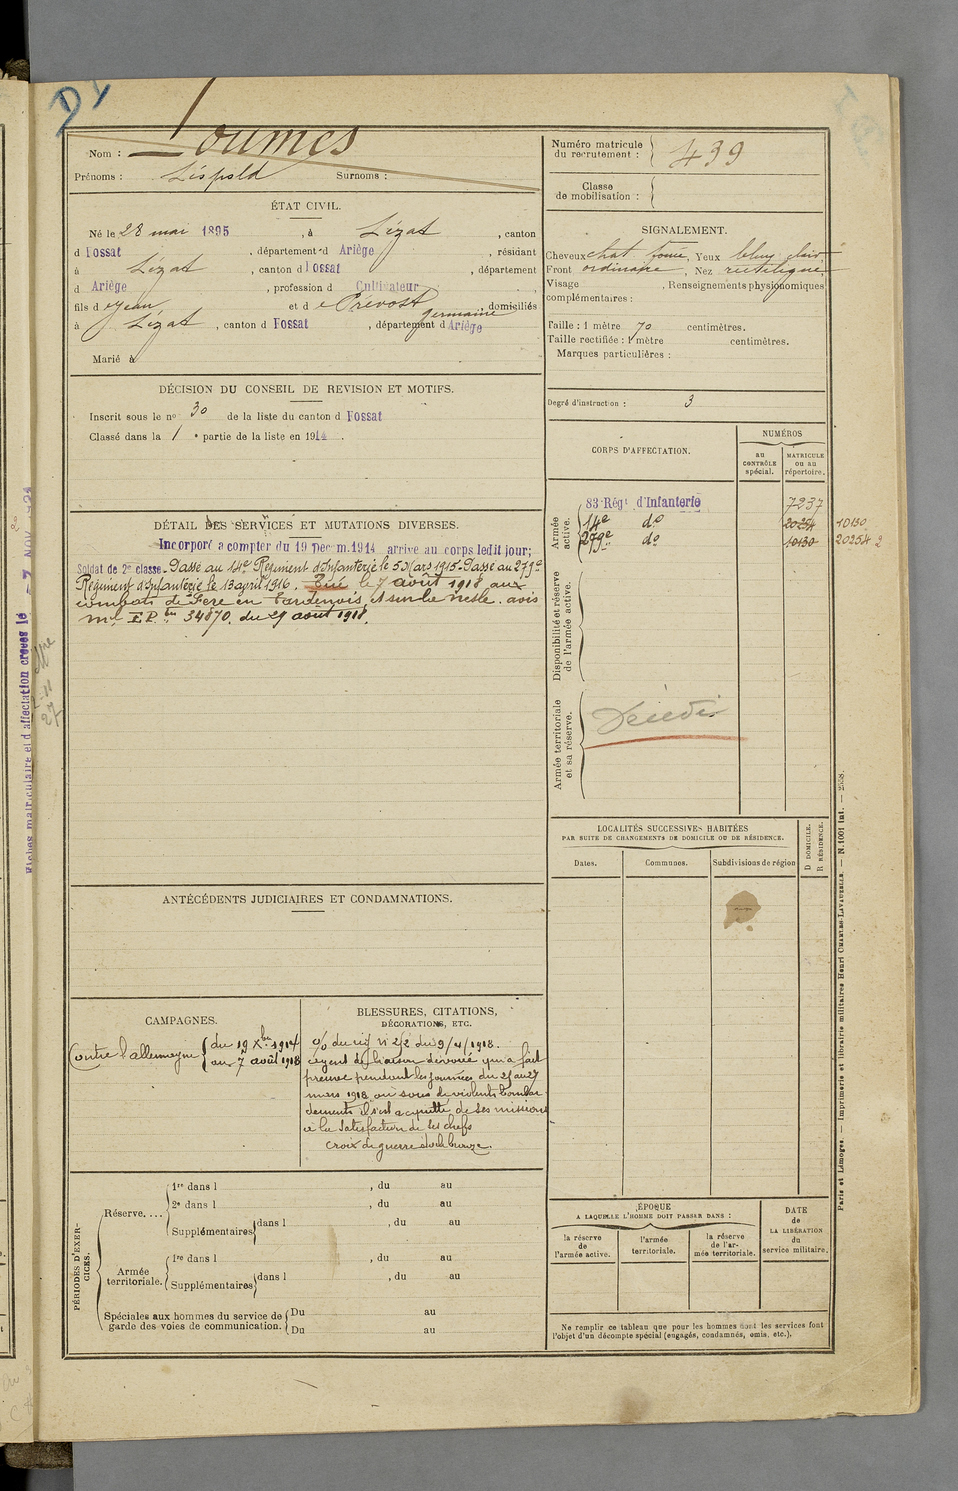 Nom : Loumes
Prénoms : Léopold Surnoms :
ÉTAT CIVIL.
Né le 28 mai 1895, à Lézat, canton
d Fossat, département d Ariège, résidant
à Lézat, canton d Fossat, département
d Ariège, profession d Cultivateur
fils d e Jean et d e Prévost Germaine, domiciliés
à Lézat, canton d Fossat, département d Ariège
Marié à
DÉCISION DU CONSEIL DE REVISION ET MOTIFS.
Inscrit sous le no 30 de la liste du canton d Fossat
Classé dans la 1e partie de la liste en 1914.
DÉTAIL DES SERVICES ET MUTATIONS DIVERSES.
Incorporé à compter du 19 Decem. 1914 arrivé au corps ledit jour;
Soldat de 2e classe. Passé au 14e Régiment d'Infanterie le 5 Mars 1915. Passé au 279e
Régiment d'Infanterie le 13 avril 1916. Tué le 7 août 1918 aux
combats de Fère en Tardenois, et sur la Vesle. avis
Mel 34870 du 29 août 1918.
ANTÉCÉDENTS JUDICIAIRES ET CONDAMNATIONS.
CAMPAGNES.
Contre l'allemagne { du 19 Xbre 1914
au 7 août 1918
BLESSURES, CITATIONS,
DÉCORATIONS, ETC.
O/ du rég. N 22 du 9/4/1918.
agent de liaison dévoué qui a fait
preuve pendant les journées du 25 au 27
mars 1918 où sous de violents bombar
dements il s'est acquitté de ses missions
à la satisfaction de ses chefs
croix de guerre étoile bronze.
PÉRIODES D'EXERCICES.
Réserve.... 1re dans l , du au
2e dans l , du au
Supplémentaires dans l , du au
Armée territoriale. 1re dans l , du au
Supplémentaires dans l , du au
Spéciales aux hommes du service de garde des voies de communication. Du au
Du au
Numéro matricule
du recrutement : 439
Classe
de mobilisation :
SIGNALEMENT.
Cheveux chat foncé, Yeux bleu clair,
Front ordinaire, Nez rectiligne
Visage , Renseignements physionomiques
complémentaires :
Taille : 1 mètre 70 centimètres.
Taille rectifiée : 1 mètre centimètres.
Marques particulières :
Degré d'instruction : 3
CORPS D'AFFECTATION.
NUMÉROS
au
CONTRÔLE
spécial.
MATRICULE
ou au
répertoire.
Armée active.
83 Régt d'Infanterie 7237
14e do 20254 10130
279e do 10130 20254 2
Disponibilité et réserve de l'armée active.
Armée territoriale et sa réserve.
Décédé
LOCALITÉS SUCCESSIVES HABITÉES
PAR SUITE DE CHANGEMENTS DE DOMICILE OU DE RÉSIDENCE.
Dates. Communes. Subdivisions de région
D DOMICILE.
R RÉSIDENCE.
ÉPOQUE
A LAQUELLE L'HOMME DOIT PASSER DANS :
la réserve
de
l'armée active.
l'armée
territoriale.
la réserve
de l'ar-
mée territoriale.
DATE
de
LA LIBÉRATION
du
service militaire.
Ne remplir ce tableau que pour les hommes dont les services font
l'objet d'un décompte spécial (engagés, condamnés, omis, etc.).
Paris et Limoges. — Imprimerie et librairie militaires Henri CHARLES-LAVAUZELLE. — N. 1001 int. —
Fiches matriculaire et d'affectation créées le - 7 NOV